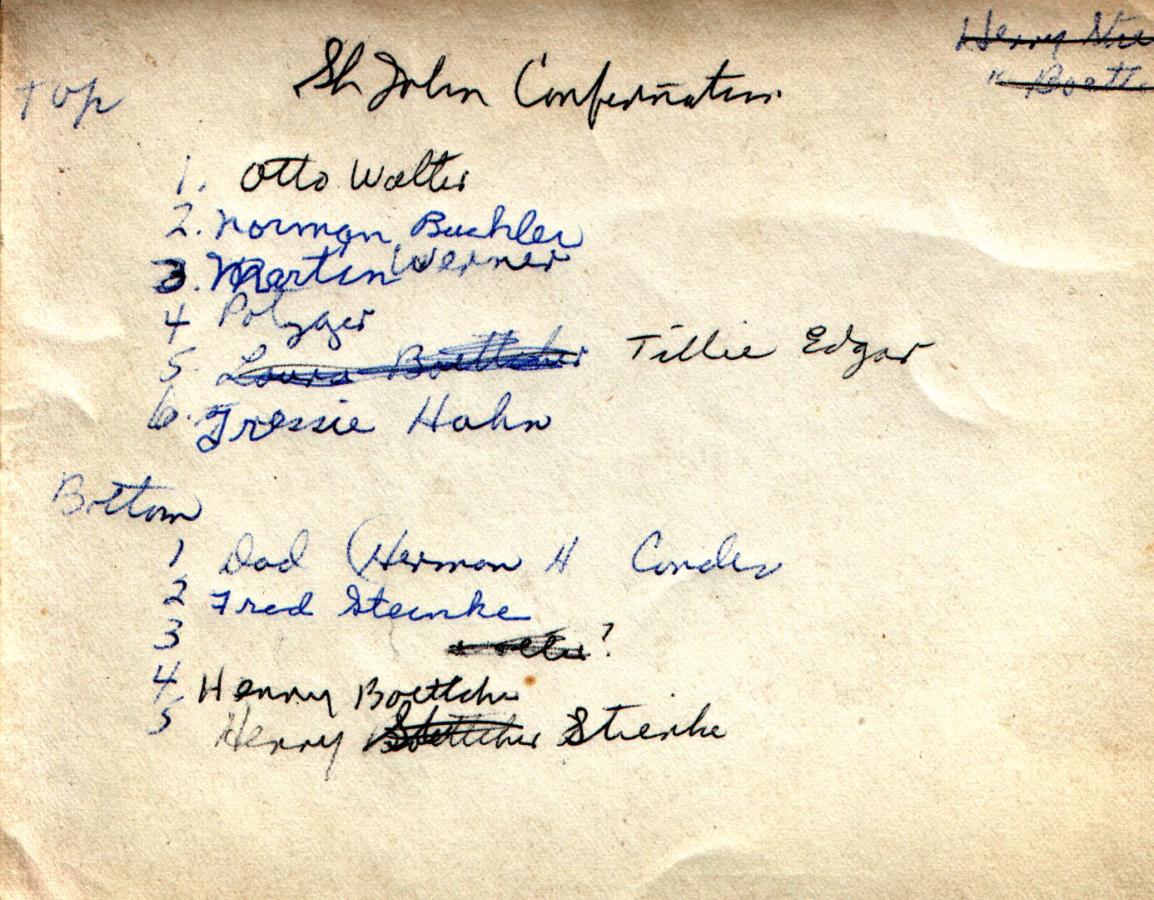 Henry
" Boett
Top
St John Confermation
1. Otto Walter
2. Norman Buehler
3. Martin Werner
4 Polzger
5. Laura Boettcher Tillie Edgar
6. Tressie Hahn
Bottom
1 Dad (Herman H Cordes
2 Fred Steinke
3 ?
4. Henry Boettche
5 Henry Boettcher Stienke